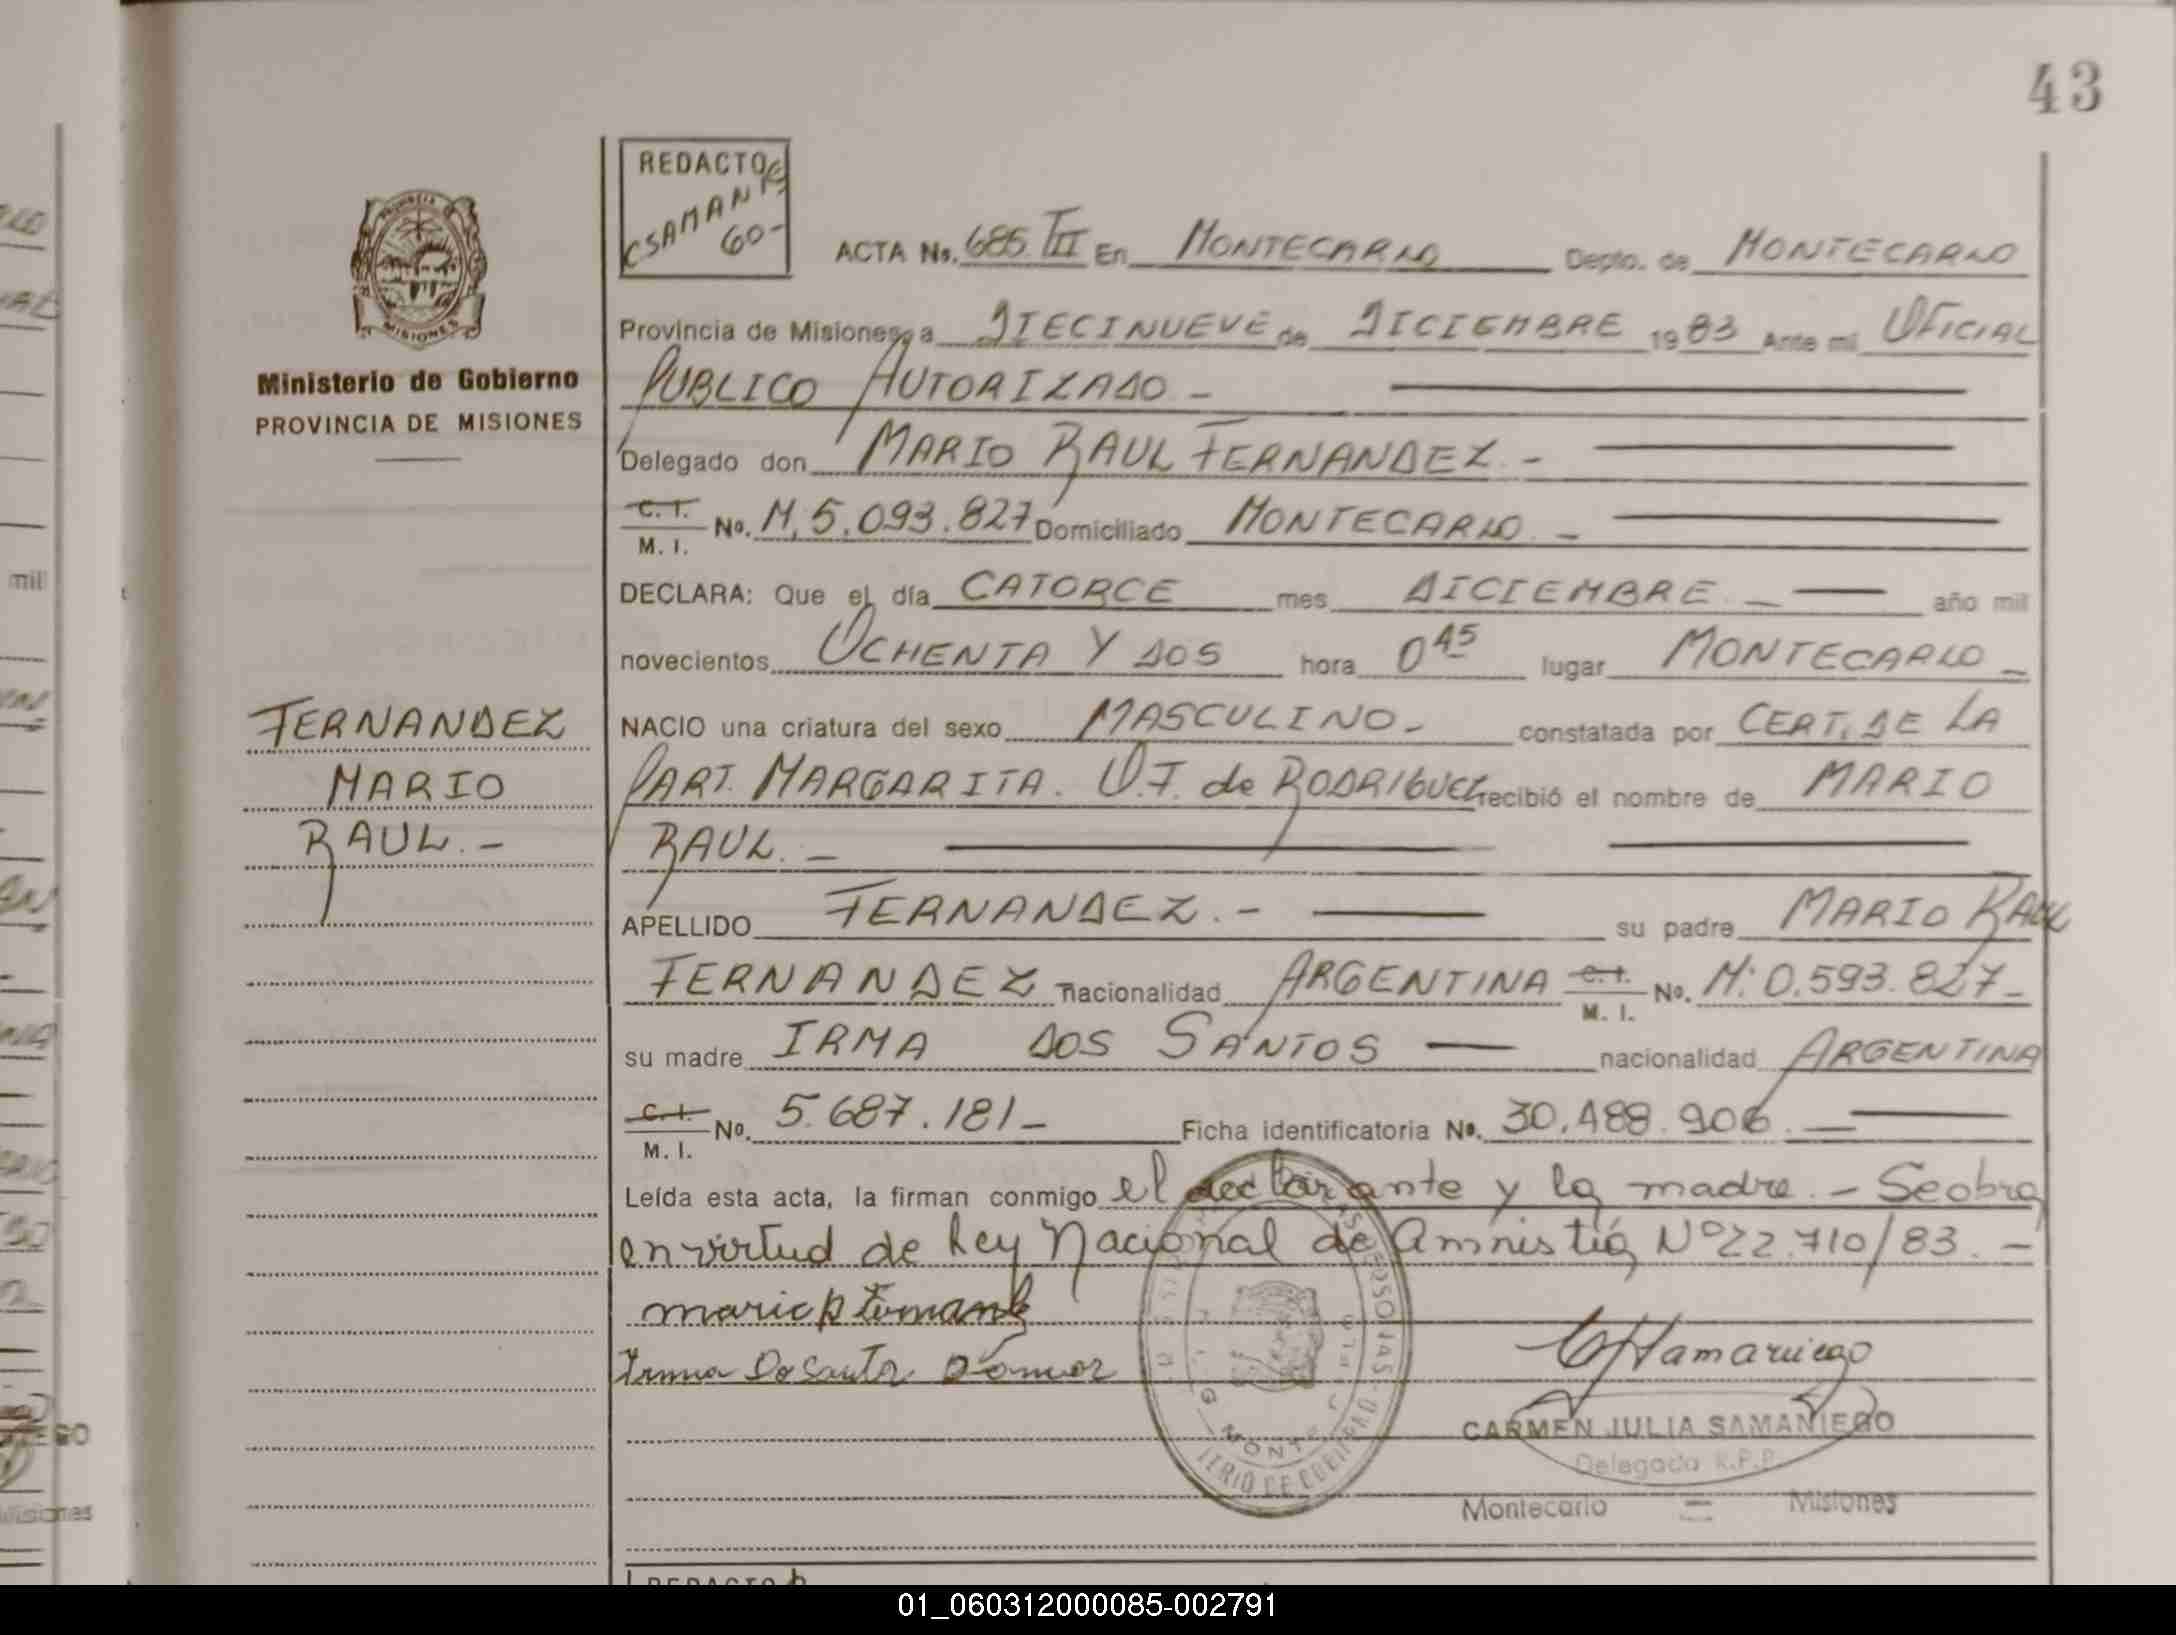 43
REDACTO
CSAMANIE
60-
ACTA No. 685 III En MONTECARLO Depto. de MONTECARLO
Provincia de Misiones, a DIECINUEVE de DICIEMBRE 1983 Ante mi OFICIAL
PUBLICO AUTORIZADO -
Delegado don MARIO RAUL FERNANDEZ. -
C. I. M. I. No. M. 5.093.827 Domiciliado MONTECARLO. -
DECLARA: Que el día CATORCE mes DICIEMBRE. - año mil
novecientos OCHENTA Y DOS hora 0 45 lugar MONTECARLO -
NACIO una criatura del sexo MASCULINO - constatada por CERT. DE LA
PART. MARGARITA. O.F. de RODRIGUEZ recibió el nombre de MARIO
RAUL. -
APELLIDO FERNANDEZ. - su padre MARIO RAUL
FERNANDEZ nacionalidad ARGENTINA C. I. M. I. No. M: 0.593.827-
su madre IRMA DOS SANTOS nacionalidad ARGENTINA
C. I. M. I. No. 5.687.181- Ficha identificatoria No. 30.488.906. -
Leída esta acta, la firman conmigo el declarante y la madre. - Se obra
en virtud de Ley Nacional de Amnistía Nº 22.710/83. -
CARMEN JULIA SAMANIEGO
Delegada R.P.P.
Montecarlo = Misiones
PROVINCIA DE
MISIONES
Ministerio de Gobierno
PROVINCIA DE MISIONES
FERNANDEZ
MARIO
RAUL. -
mil
Misiones
REDACTO
01_060312000085-002791